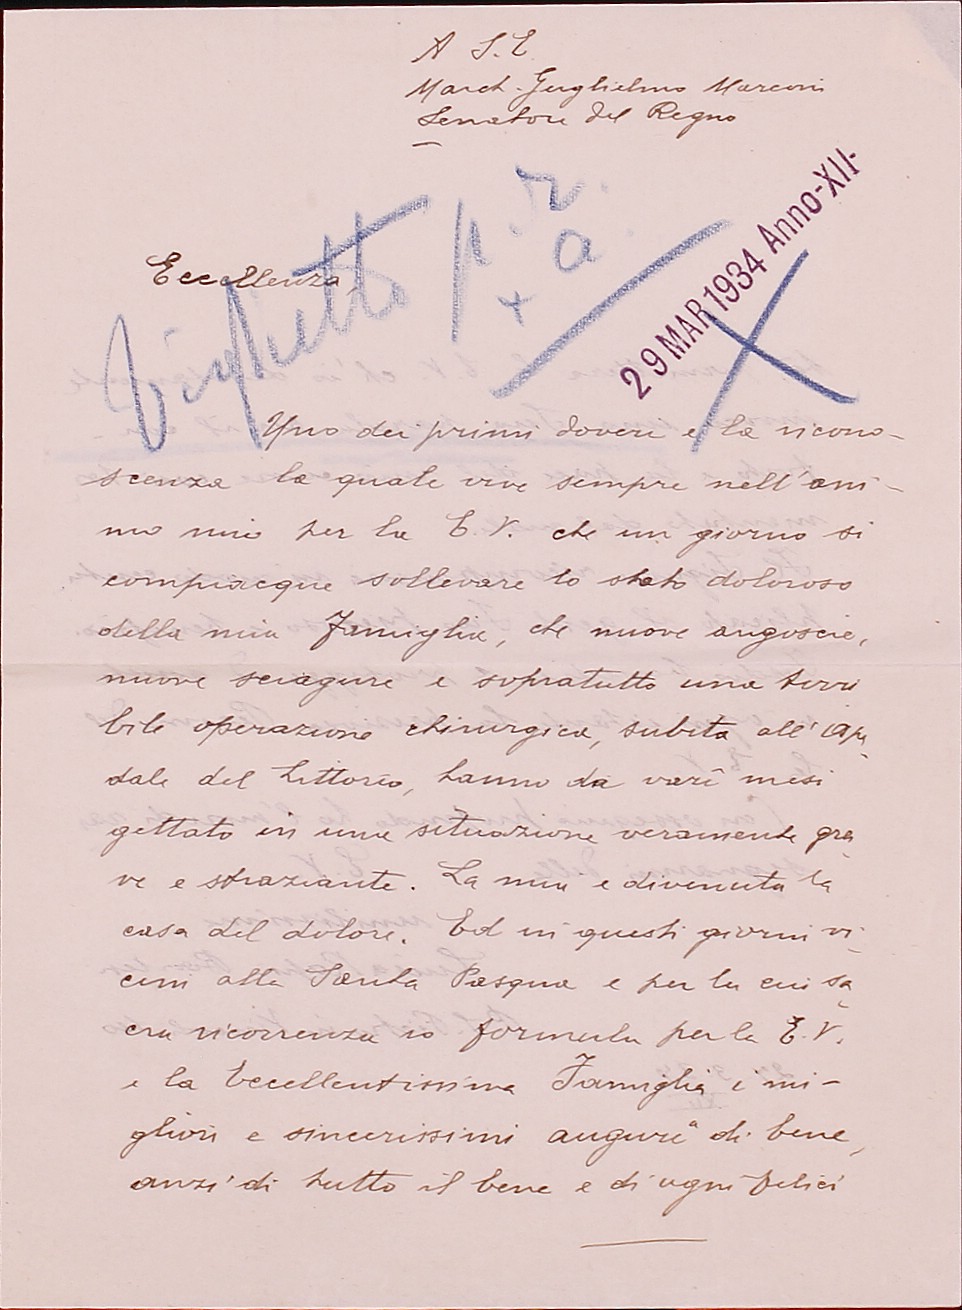 A S.E.
March. Guglielmo Marconi
Senatore del Regno
29 MAR 1934 Anno-XII-
Eccellenza,
Biglietto p. r.
a
+
Uno dei primi doveri e la ricono-
scenza la quale vive sempre nell'ani-
mo mio per la E.V. che un giorno si
compiacque sollevare lo stato doloroso
della mia Famiglia, che nuove angoscie,
nuove sciagure e sopratutto una terri
bile operazione chirurgica, subita all'Ospe
dale del Littorio, hanno da varî mesi
gettato in una situazione veramente gra
ve e straziante. La mia e divenuta la
casa del dolore. Ed in questi giorni vi-
cini alla Santa Pasqua e per la cui sa
cra ricorrenza io formulo per la E.V.
e la Eccellentissima Famiglia i mi-
gliori e sincerissimi auguri di bene,
anzi di tutto il bene e di ogni felici